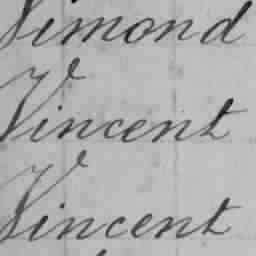 Simond
Vincent
Vincent